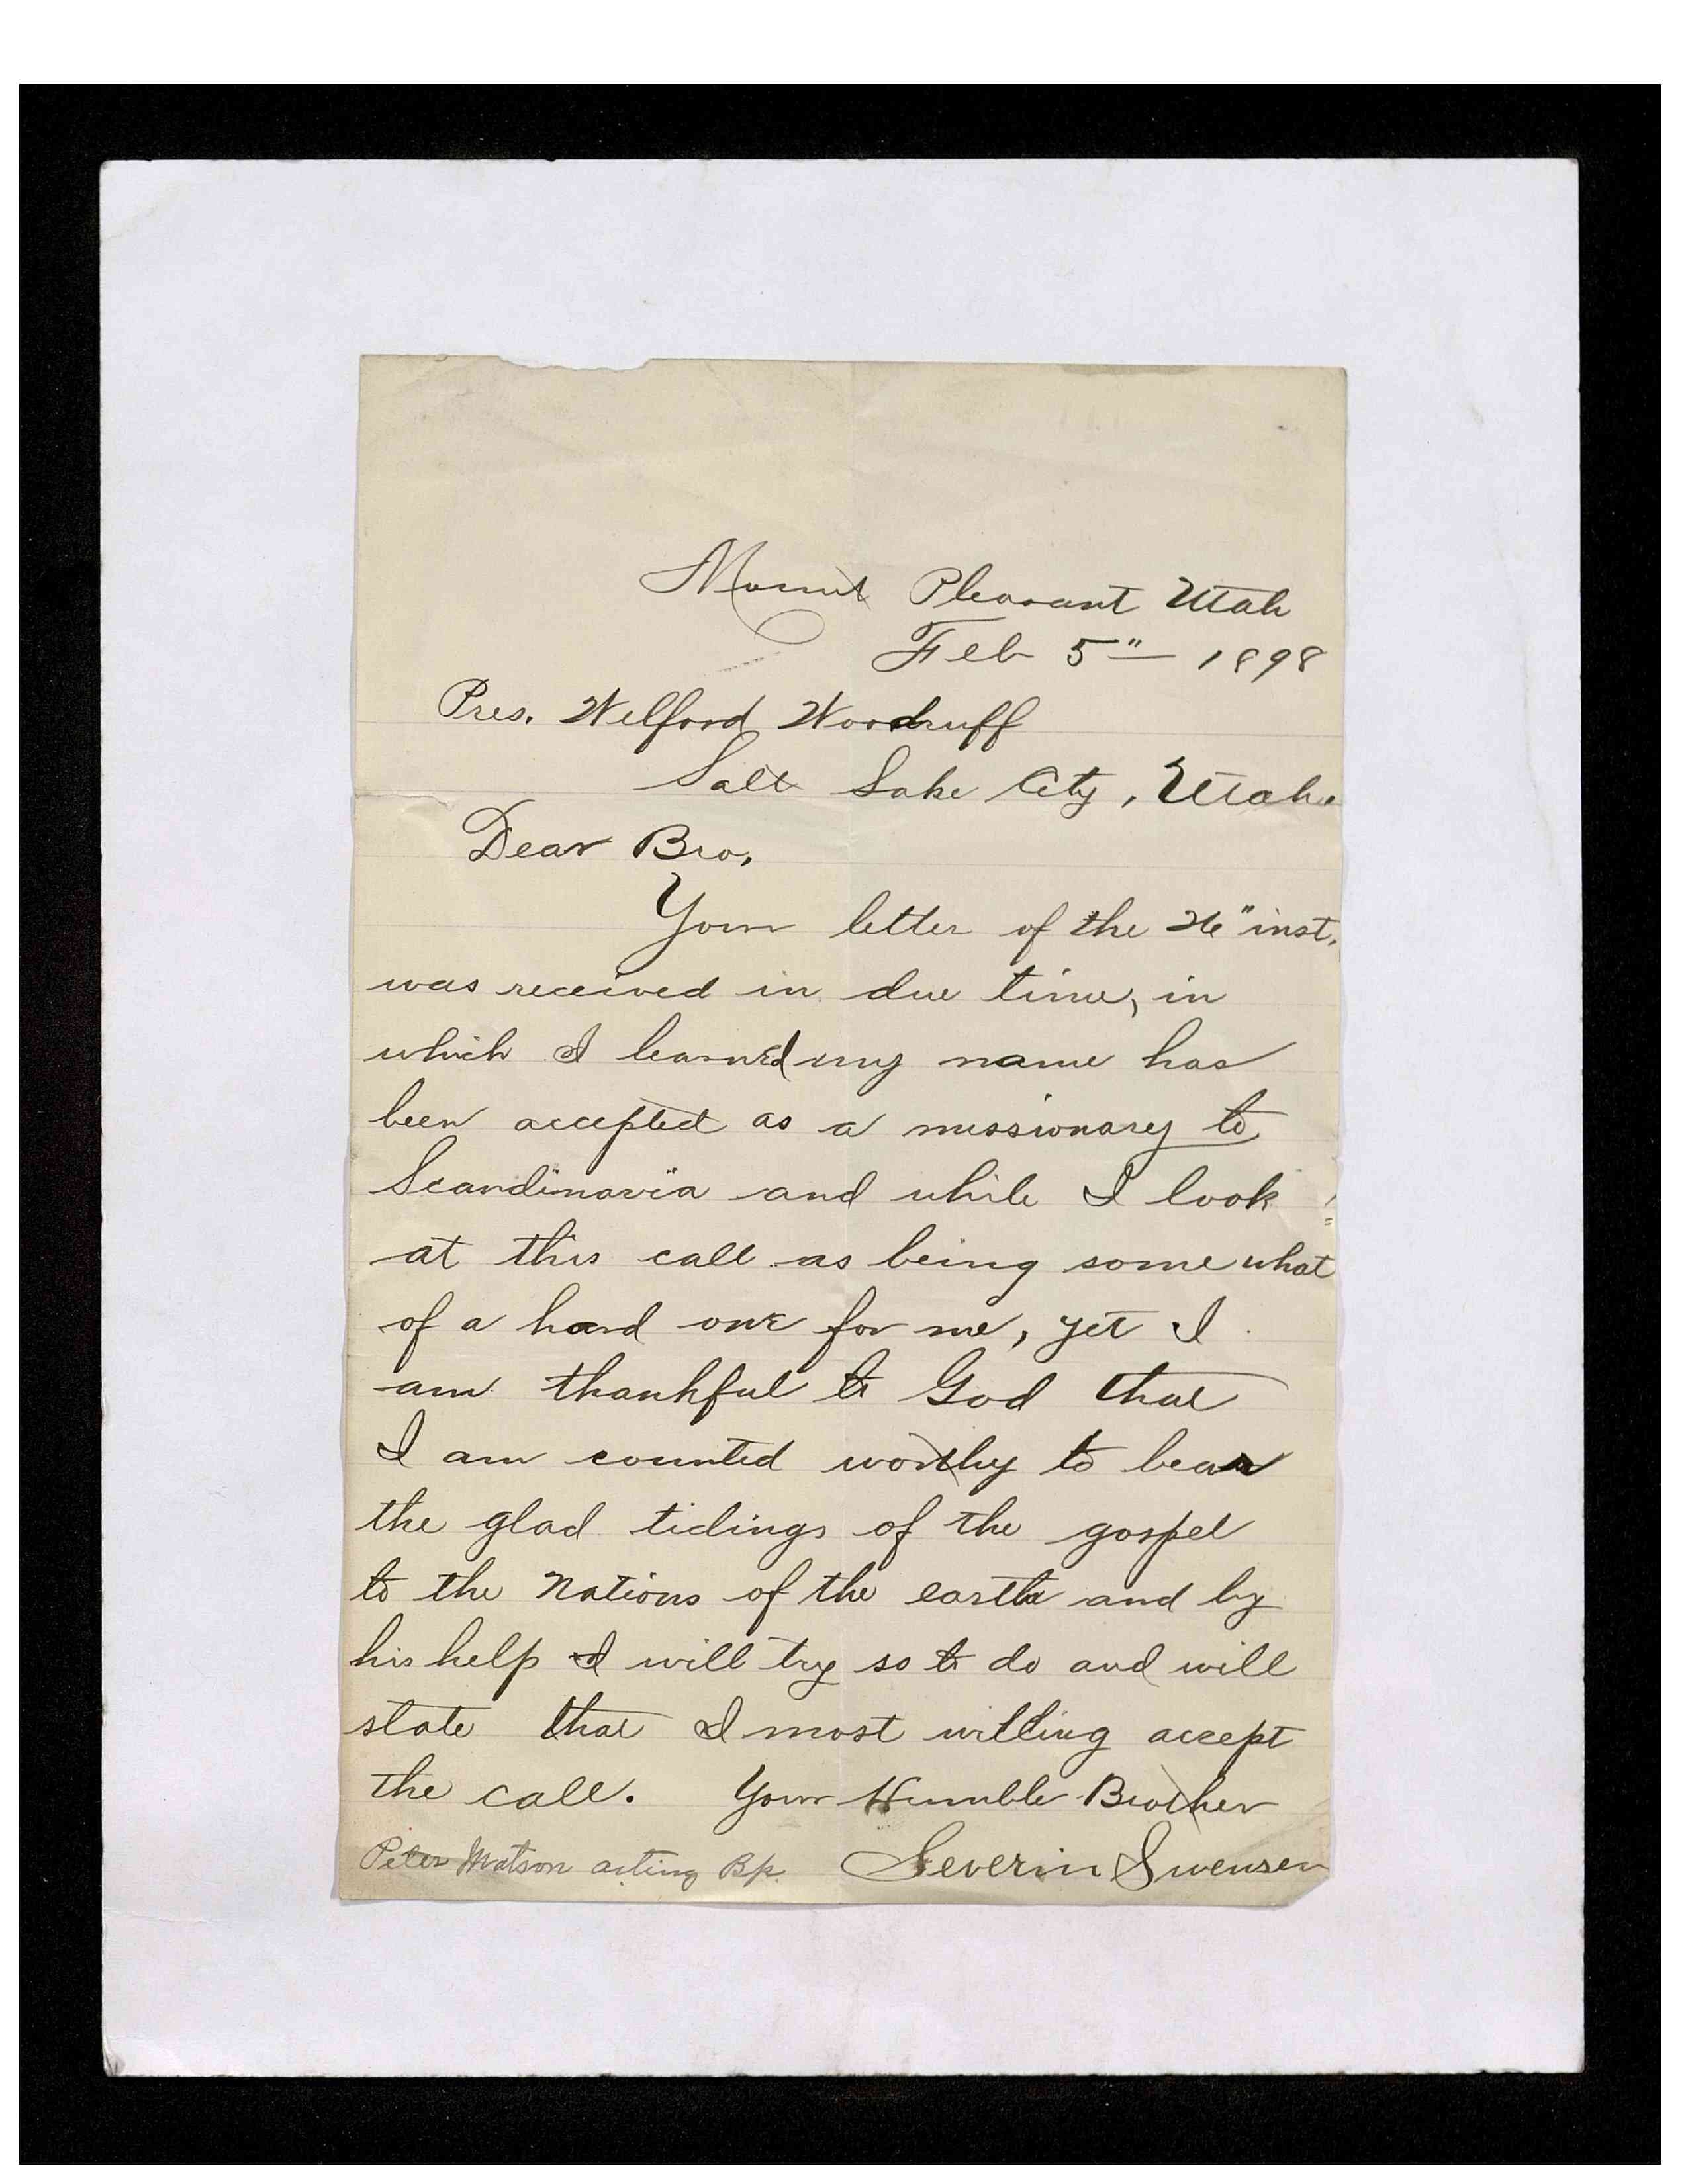 Mount Pleasant Utah
Feb 5" 1898
Pres. Welford Woodruff
Salt Lake City, Utah.
Dear Bro,
Your letter of the 26" inst.
was received in due time, in
which I learned my name has
been accepted as a missionary to
Scandinavia and while I look
at this call as being some what
of a hard one for me, yet I
am thankful to God that
I am counted worthy to bear
the glad tidings of the gospel
to the Nations of the earth and by
his help I will try so to do and will
state that I most willing accept
the call. Your Humble Brother
Severin Swensen
Peter Matson acting Bp.